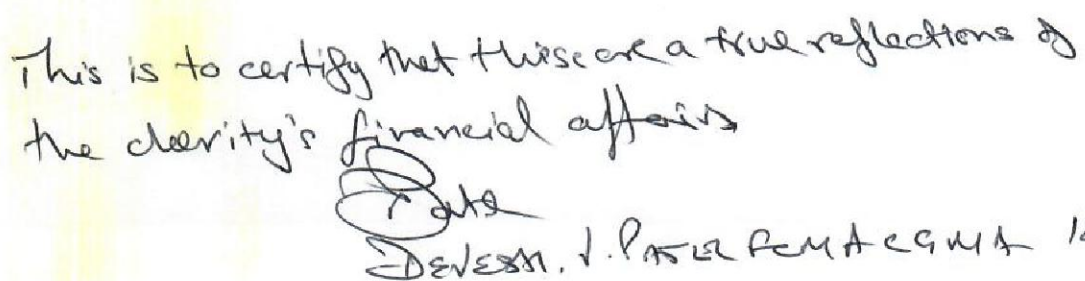 This is to certify that these are a true reflections of
the charity's financial affairs
DEVESH. J. PATEL FCMA CGMA